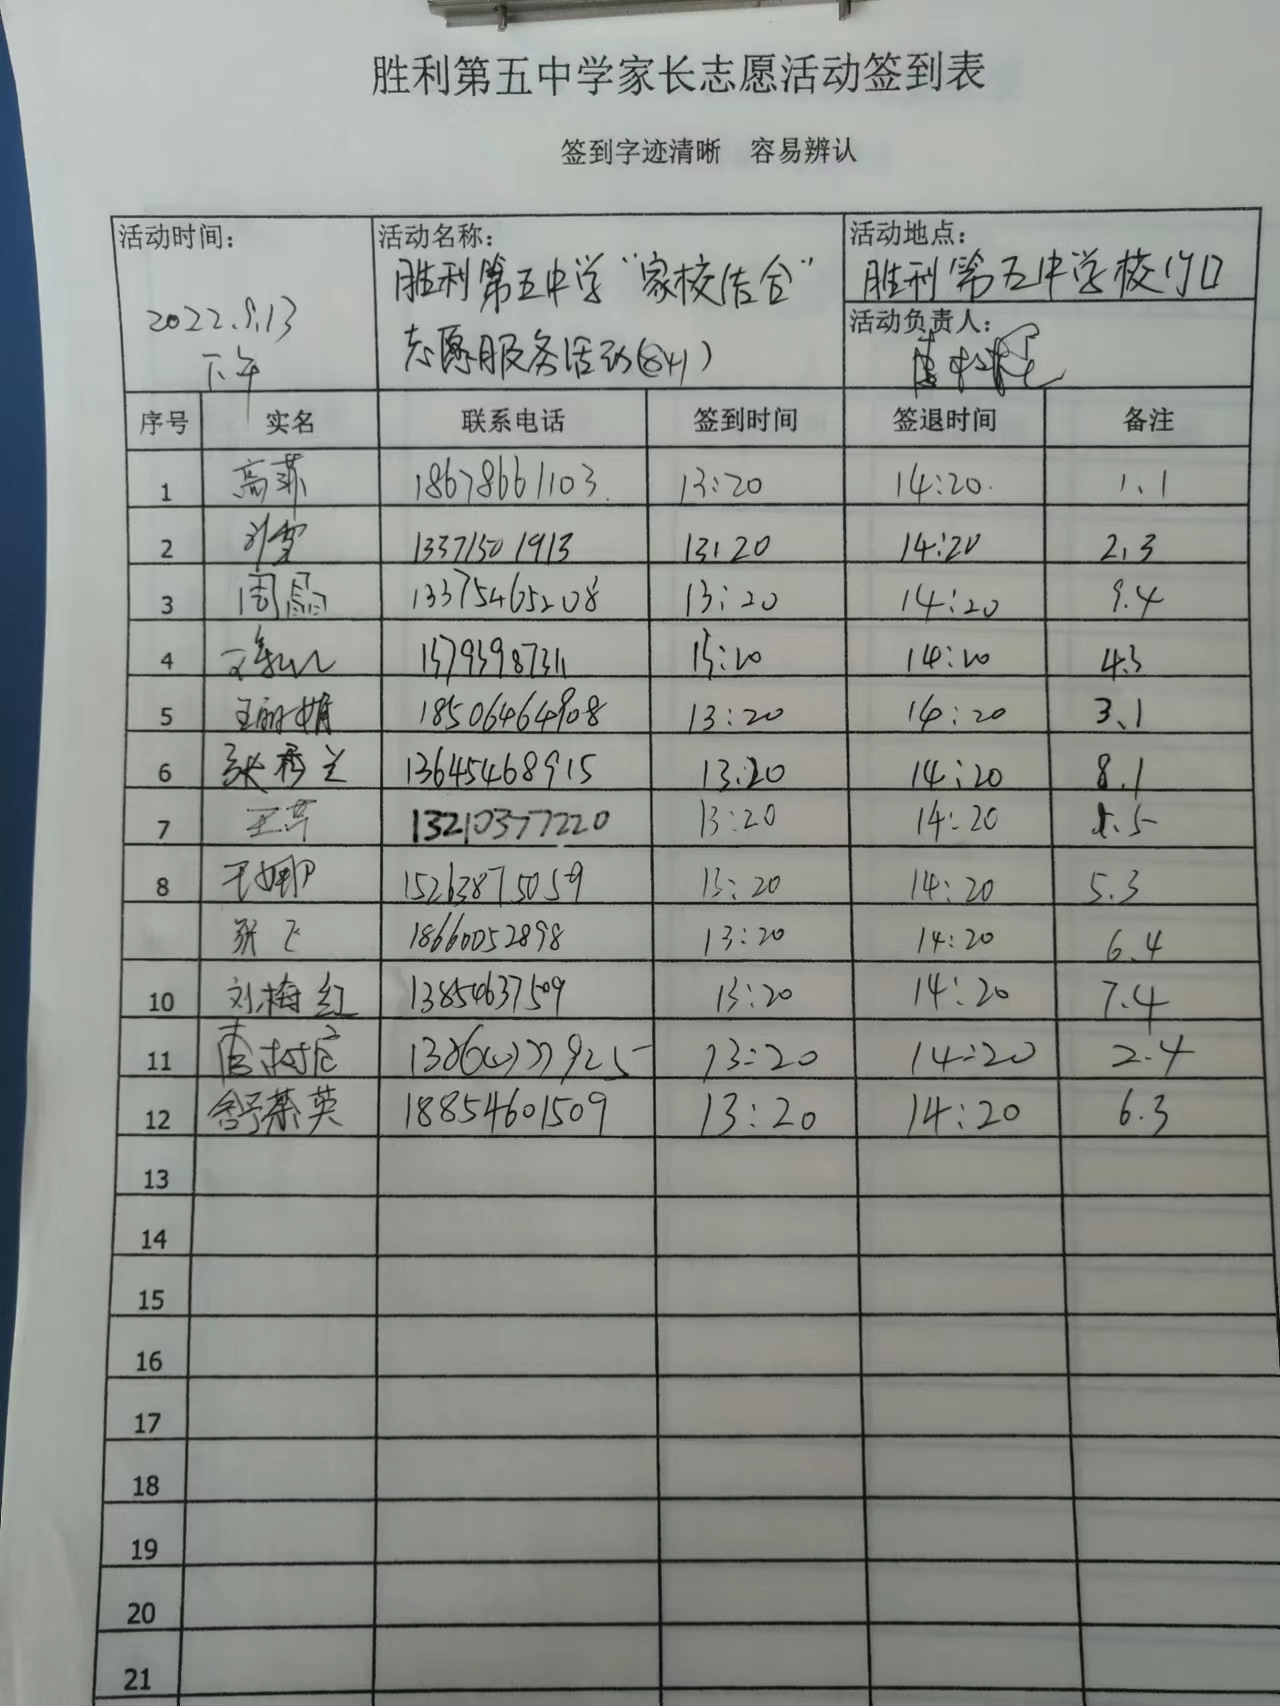 胜利第五中学家长志愿活动签到表
签到字迹清晰 容易辨认
活动时间：
2022.9.13
下午
活动名称：
胜利第五中学“家校结合”
志愿服务活动(841)
活动地点：
胜利第五中学校门口
活动负责人：
序号 实名 联系电话 签到时间 签退时间 备注
1 高菲 18678661103 13:20 14:20 1.1
2 刘雪 13371501913 13:20 14:20 2.3
3 周 13375465208 13:20 14:20 9.4
4 15793987311 13:20 14:20 4.3
5 王丽娟 18506464908 13:20 14:20 3.1
6 张秀兰 13645468915 13:20 14:20 8.1
7 王芹 13210377220 13:20 14:20 1.5
8 王娜 15263875059 13:20 14:20 5.3
张飞 18660052898 13:20 14:20 6.4
10 刘梅红 13854637509 13:20 14:20 7.4
11 13:20 14:20 2.4
12 舒荣英 18854601509 13:20 14:20 6.3
13
14
15
16
17
18
19
20
21